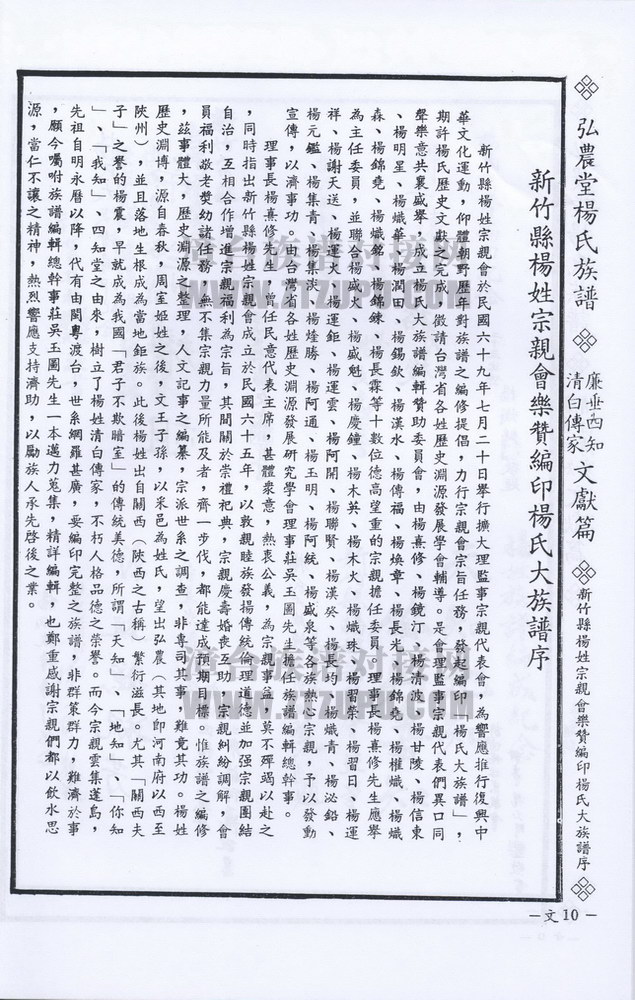 弘農堂楊氏族譜
廉垂四知
清白傳家
文獻篇
新竹縣楊姓宗親會樂贊編印楊氏大族譜序
新竹縣楊姓宗親會樂贊編印楊氏大族譜序
新竹縣楊姓宗親會於民國六十九年七月二十日舉行擴大理監事宗親代表會，為響應推行復興中
華文化運動，仰體朝野歷年對族譜之編修提倡，力行宗親會宗旨任務，發起編印「楊氏大族譜」，
期許楊氏歷史文獻之完成，徵請台灣省各姓歷史淵源發展學會輔導。是會理監事宗親代表們異口同
聲樂意共襄盛舉，成立楊氏大族譜編輯贊助委員會，由楊熹修、楊鏡汀、楊清波、楊甘陵、楊信東
、楊明星、楊熾華、楊潤田、楊錫欽、楊漢水、楊傳福、楊煥章、楊長光、楊錦堯、楊權熾、楊熾
森、楊錦堯、楊熾銘、楊錦鍊、楊長霖等十數位德高望重的宗親擔任委員，理事長楊熹修先生應舉
為主任委員，並聯合楊成火、楊威魁、楊慶鐘、楊木英、楊木火、楊熾珠、楊習榮、楊習日、楊運
祥、楊謝天送、楊運火、楊運鉅、楊運雲、楊阿開、楊聯賢、楊漢癸、楊長均、楊熾青、楊泌鉛、
楊元鑑、楊集青、楊集淡、楊煃勝、楊阿通、楊玉明、楊阿統、楊盛泉等各族熱心宗親，予以發動
宣傳，以濟事功。由台灣省各姓歷史淵源發展研究學會理事莊吳玉圖先生擔任族譜編輯總幹事。
理事長楊熹修先生，曾任民意代表主席，甚體衆意，熱衷公義，為宗親事益，莫不殫竭以赴之
，同時指出新竹縣楊姓宗親會成立於民國六十五年，以敦親睦族發揚傳統倫理道德並加强宗親團結
自治，互相合作增進宗親福利為宗旨，其間關於崇禮祀典，宗親慶壽婚喪之助，宗親糾紛調解，會
員福利敬老獎幼諸任務，無不集宗親力量所能及者，齊一步伐，都能達成預期目標。惟族譜之編修
，茲事體大，歷史淵源之整理，人文記事之編纂，宗派世系之調查，非專司其事，難竟其功。楊姓
歷史淵博，源自春秋，周室姬姓之後，文王子孫，以采邑為姓氏，望出弘農（其地即河南府以西至
陝州），並且落地生根成為當地鉅族。此後楊姓出自關西（陝西之古稱）繁衍滋長。尤其「關西夫
子」之譽的楊震，早就成為我國「君子不欺暗室」的傳統美德，所謂「天知」、「地知」、「你知
」、「我知」、四知堂之由來，樹立了楊姓清白傳家，不朽人格品德之榮譽。而今宗親雲集蓬島，
先祖自明永曆以降，代有由閩粵渡台，世系網羅甚廣，妥編印完整之族譜，非群策群力，難濟於事
，願今囑咐族譜編輯總幹事莊吳玉圖先生一本邁力蒐集，精詳編輯，也鄭重感謝宗親們都以飲水思
源，當仁不讓之精神，熱烈響應支持濟助，以勵族人承先啓後之業。
－文 10－
清台族譜对接网
WWW.TTZUPU.COM
清台族譜对接网
WWW.TTZUPU.COM